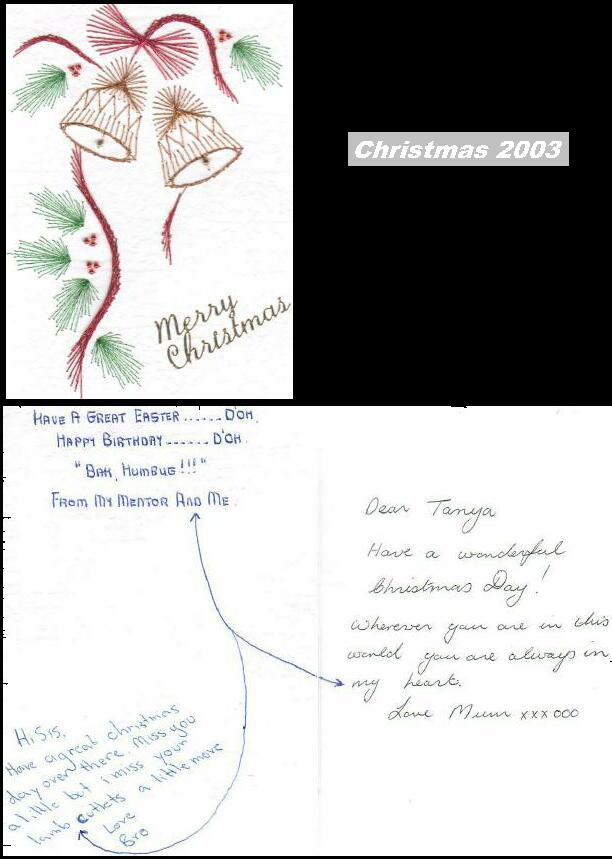 Christmas 2003
Merry
Christmas
HAVE A GREAT EASTER ...... D'OH.
HAPPY BIRTHDAY ...... D'OH.
"BAH, HUMBUG !!!"
FROM MY MENTOR AND ME.
Dear Tanya
Have a wonderful
Christmas Day!
Wherever you are in this
world you are always in
my heart.
Love Mum xxx000
Hi Sis,
Have a great christmas
day over there. Miss you
a little but i miss your
lamb cutlets a little more
Love
Bro